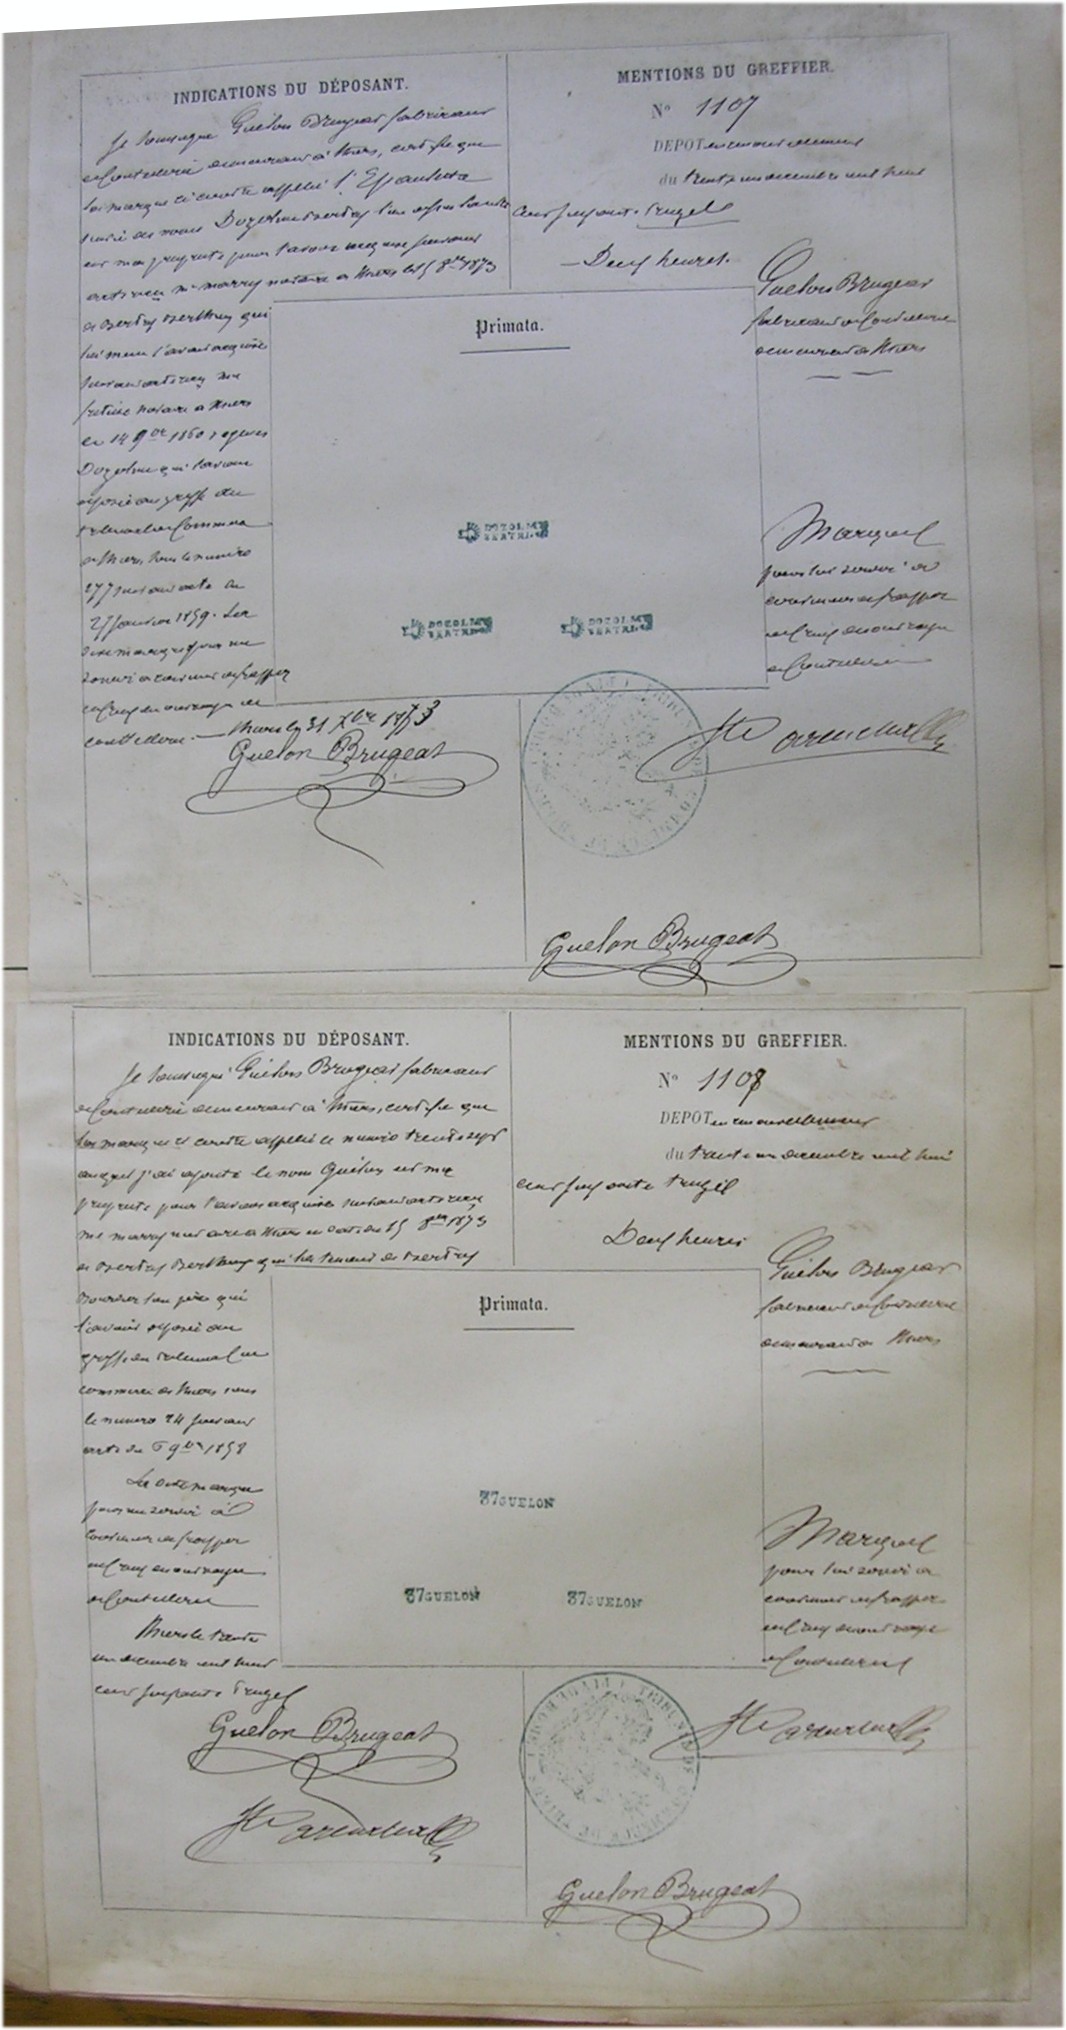 INDICATIONS DU DÉPOSANT.
Je soussigné Guélon Brugeat fabricant
de Coutellerie demeurant à Thiers, certifie que
la marque ci contre appelée l'Epaulette
suivie des mots Dozolme Bertry
est ma propriété pour l'avoir acquise suivant
acte reçu Me Marry notaire à Thiers le 15 8bre 1873
de Bertry Berthuy qui
lui même l'avait acquise
suivant acte reçu Me
notaire à Thiers
le 14 9bre 1860
Dozolme qui l'avait
déposée au greffe du
tribunal de Commerce
de Thiers sous le numéro
277 suivant acte du
27 janvier 1859. La
dite marque pour me
servir à continuer de frapper
ouvrages de
coutellerie. — Thiers le 31 Xbre 1873
Guelon Brugeat
MENTIONS DU GREFFIER.
N° 1107
DEPOT en renouvellement
du trente un décembre mil huit
cent soixante treize
— Deux heures.
Guelon Brugeat
fabricant de Coutellerie
demeurant à Thiers
Primata.
DOZOLME
BERTRY
DOZOLME
BERTRY
DOZOLME
BERTRY
Marque
pour lui servir à
continuer de frapper
de Coutellerie
Guelon Brugeat
INDICATIONS DU DÉPOSANT.
Je soussigné Guélon Brugeat fabricant
de Coutellerie demeurant à Thiers, certifie que
la marque ci contre appelée le numéro trente sept
auquel j'ai ajouté le nom Guélon est ma
propriété pour l'avoir acquise suivant acte reçu
Me Marry notaire à Thiers en date du 15 8bre 1873
de Bertry Berthuy qui la tenait de Bertry
son père qui
l'avait déposée au
greffe du tribunal de
commerce de Thiers sous
le numéro 24 suivant
acte du 6 9bre 1858
La dite marque
pour me servir à
continuer de frapper
de Coutellerie
Thiers le trente
un décembre mil huit
cent soixante treize
Guelon Brugeat
MENTIONS DU GREFFIER.
N° 1108
DEPOT en renouvellement
du trente un décembre mil huit
cent soixante treize
Deux heures
Guélon Brugeat
fabricant de Coutellerie
demeurant à Thiers
Primata.
37 GUELON
37 GUELON
37 GUELON
Marque
pour lui servir à
continuer de frapper
de Coutellerie
Guelon Brugeat